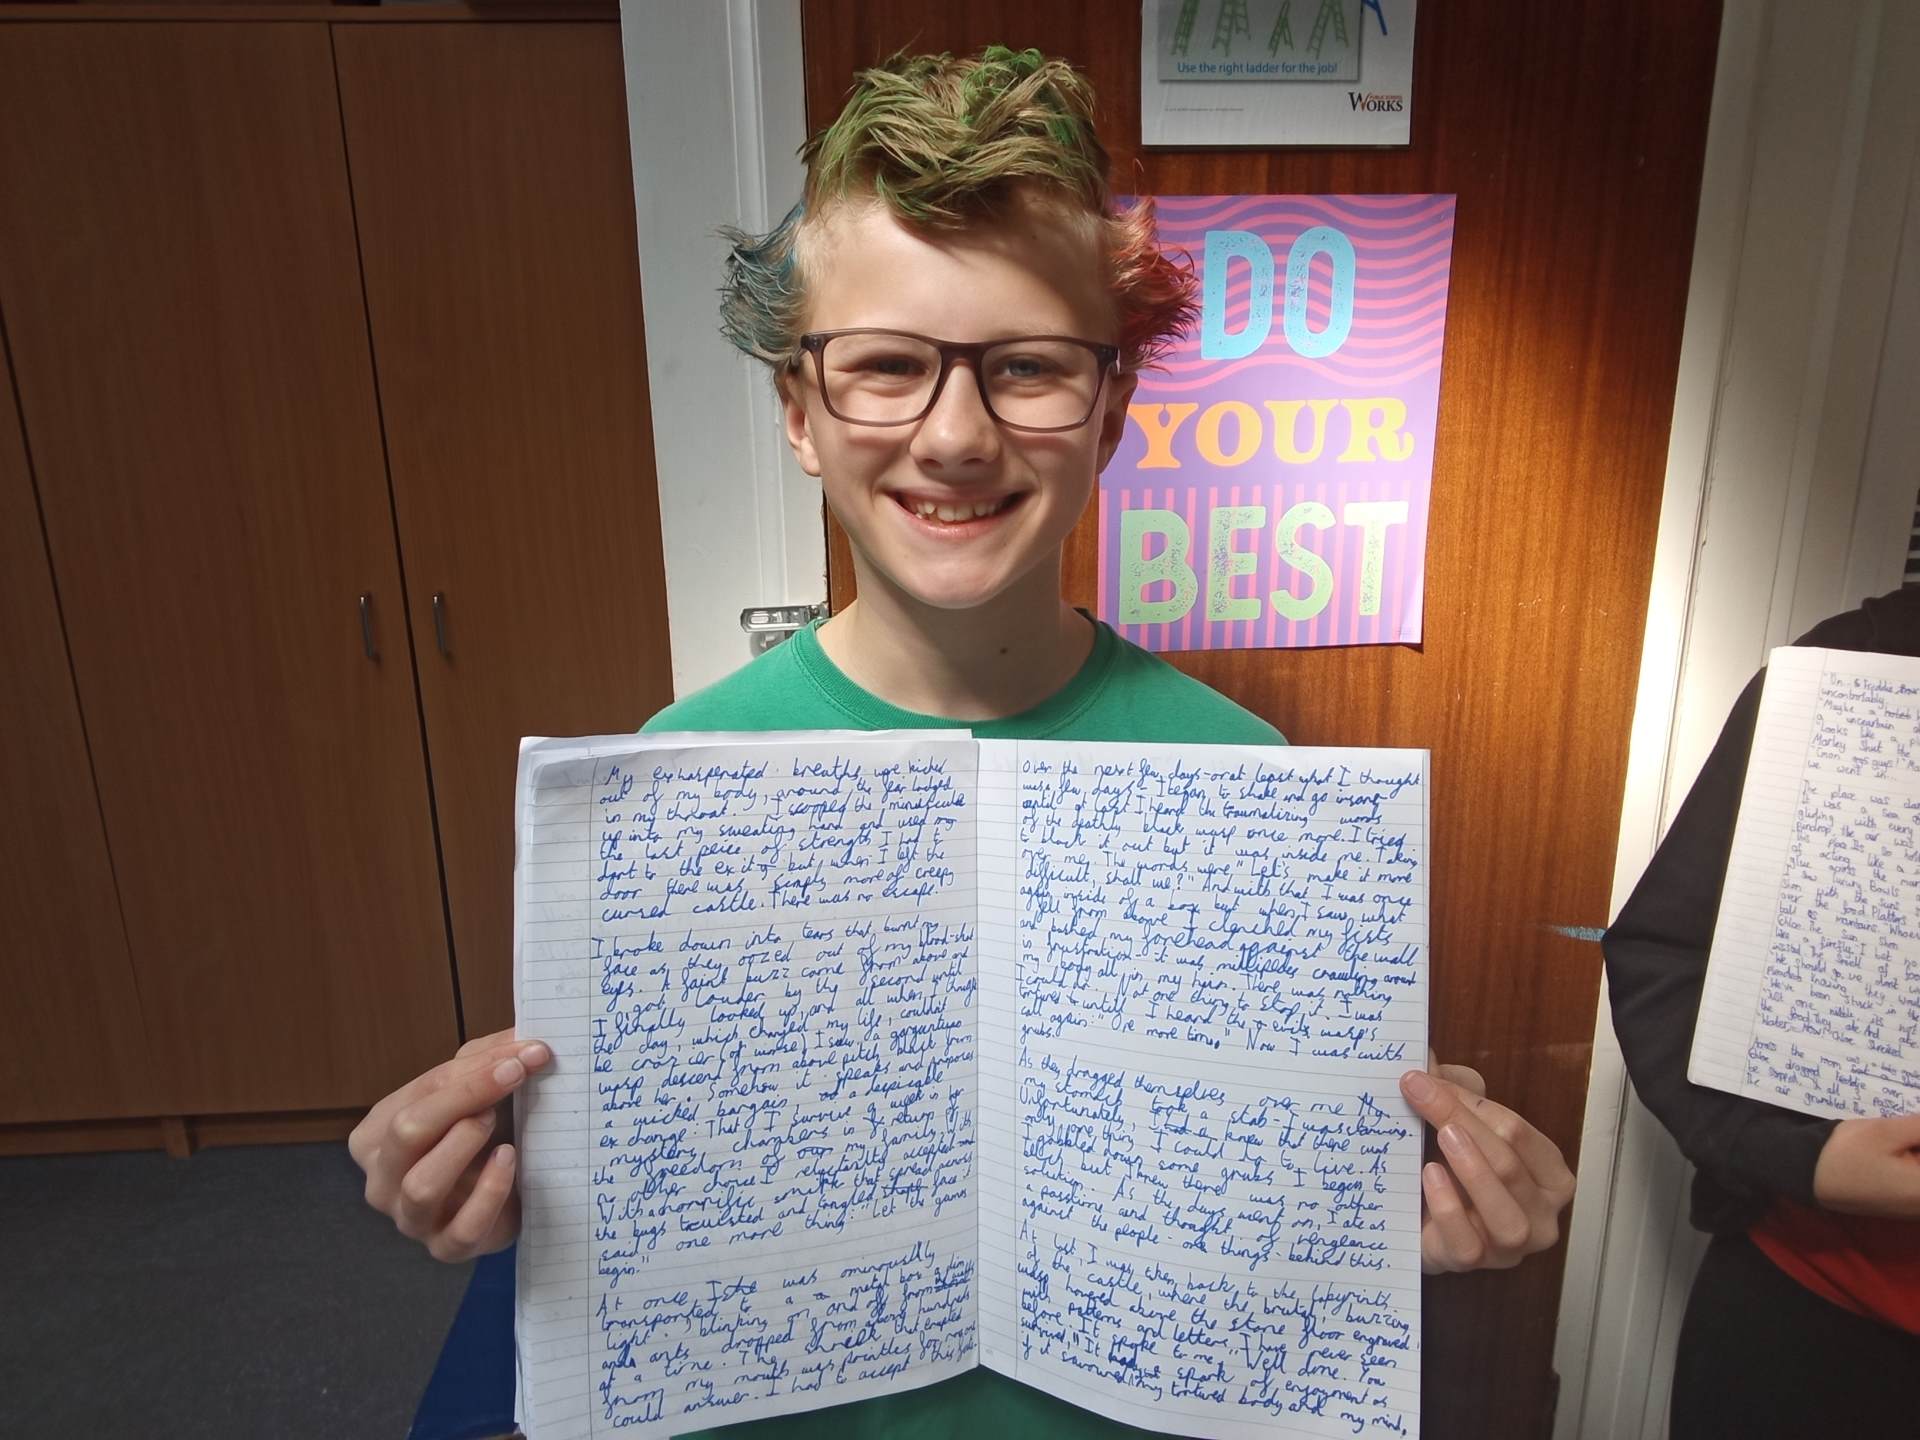 Use the right ladder for the job!
WORKS
DO
YOUR
BEST
My exhasperated breaths were kicked
out of my body, around the fear lodged
in my throat. I scooped the minidicule
up into my sweating hand and used my
the last peice of strength I had to
dart to the exit but when I left the
door there was simply more of creepy
cursed castle. There was no escape.
I broke down into tears that burnt my
face as they oozed out of my blood-shot
eyes. A faint buzz came from above and
it got louder by the second until
I finally looked up, and all when I though
the day, which changed my life, couldnt
be crazier (or worse) I saw a gargantuas
wasp descend from above pitch black from
above her. Somehow it speaks and proposes
a wicked bargain as a despicable
exchange: That I survive a week in her
mystery chambers in return of
the freedom of our my family. With
no other choice I reluctantly accepted and
With a horrific smirk that spread across
the bugs twisted and tangled face it
said one more thing: "Let the games
begin."
At once, I was ominously
transported to a metal box a dim
light blinking on and off from
and ants dropped from above hundreds
at a time. The shreik that erupted
from my mouth was pointles for no one
could answer. I had to accept this fate.
Over the next few days-or at least what I thought
was a few days - I began to shake and go insane
until at last I heard the traumatizing words
of the deathly black wasp once more. I tried
to block it out but it was inside me. Taking
over me. The words were "Let's make it more
difficult, shall we?" And with that I was once
again inside of a box but when I saw what
fell from above I clenched my fists
and bashed my forehead against the wall
in frustration - it was millipedes crawling around
my body all in my hair. There was nothing
I could do. Not one thing to stop it. I was
tortured until I heard the evils wasp's
call again: "One more time." Now I was with
grubs.
As they dragged themselves over me My
my stomach took a stab - I was starving.
Unfortunately, I knew that there was
only one thing I could do to live. As
I gobbled down some grubs I began to
belch but knew there was no other
solution. As the days went on, I ate as
a passtime and thought of vengeance
against the people - or things - behind this.
At last, I was taken back to the labyrinth
of the castle, where the brutal, buzzing
wasp hovered above the stone floor engraved
with patterns and letters I have never seen
before. It spoke to me, "Well done. You
survived," It had a spark of enjoyment as
if it savoured my tortured body and my mind.
uncomfortably.
"Maybe a
a uncertain
"Looks like a
Marley shut the
"Cmon guys guys!"
we went in...
The place was
It was a sea of
gliding with every
the air was
of acting like a
glue across the
I saw
Sion with the suns
over the food Platters
ball of mountains.
the Sun shon
like a firefly. I bet no
the smell of
We should go. we dont
Pleaded knowing they
We've been stuck in the
"Just one nibble, its not
the food they ate And
"Water, Now" Chloe
Across the room was
Chloe dragged over
be stopped. It all passed
the air grumbled. the